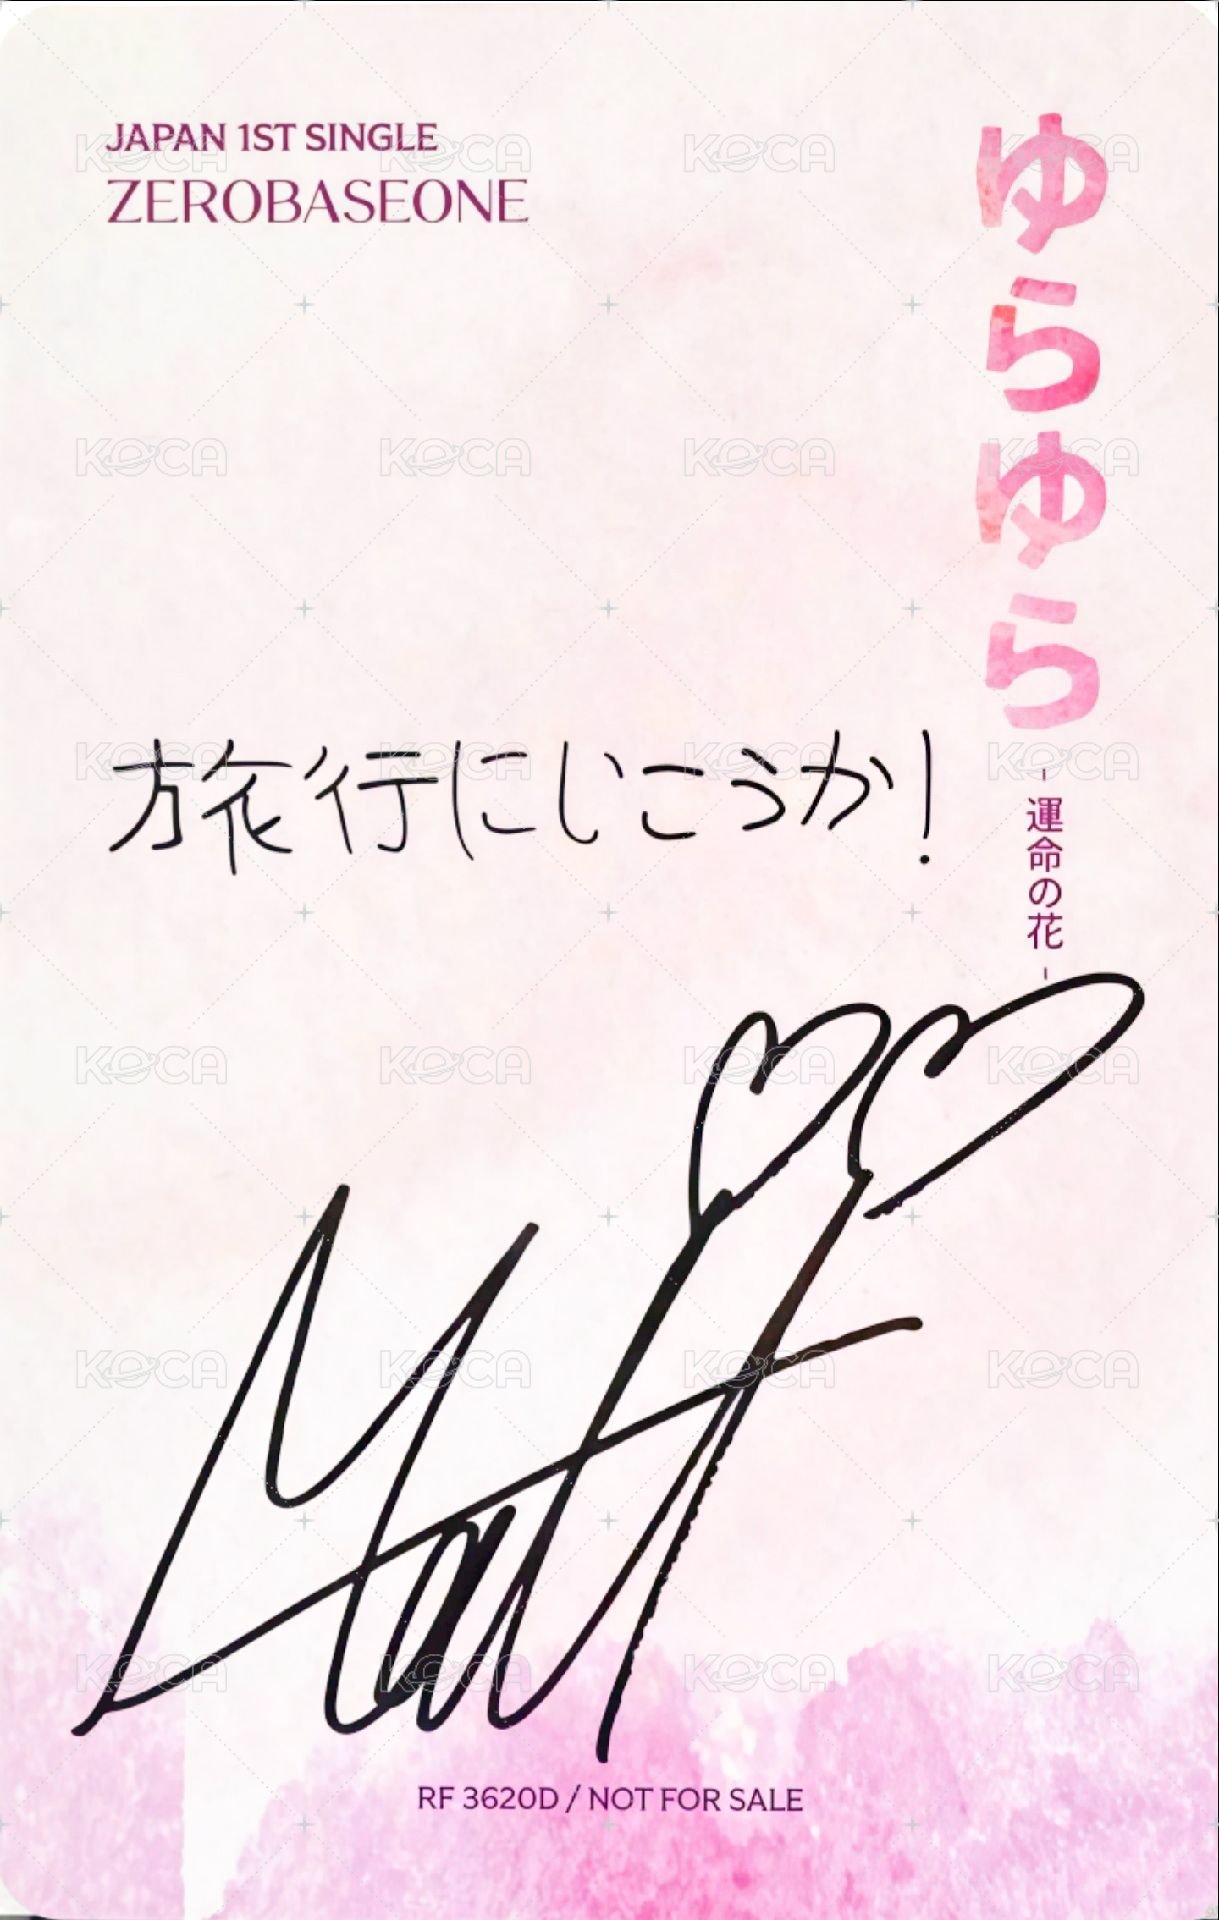 JAPAN 1ST SINGLE
ZEROBASEONE
ゆらゆら
-運命の花-
旅行にいこうか!
RF 3620D / NOT FOR SALE
KOCA